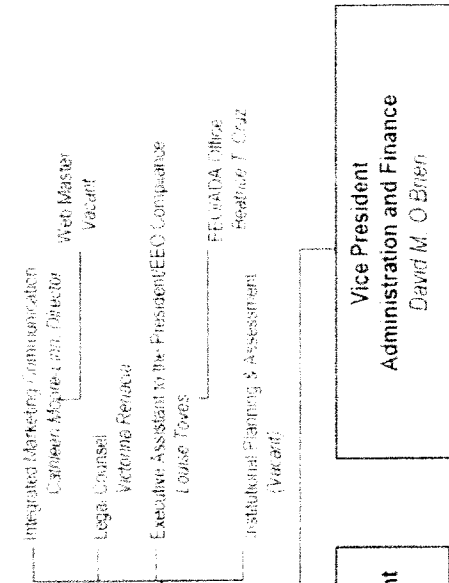 Integrated Marketing Communication
Cathleen Moore-Linn, Director
Web Master
Vacant
Legal Counsel
Victorina Renacia
Executive Assistant to the President/EEO Compliance
Louise Toves
EEO/ADA Office
Beatrice T. Cruz
Institutional Planning & Assessment
(Vacant)
Vice President
Administration and Finance
David M. O'Brien
nt